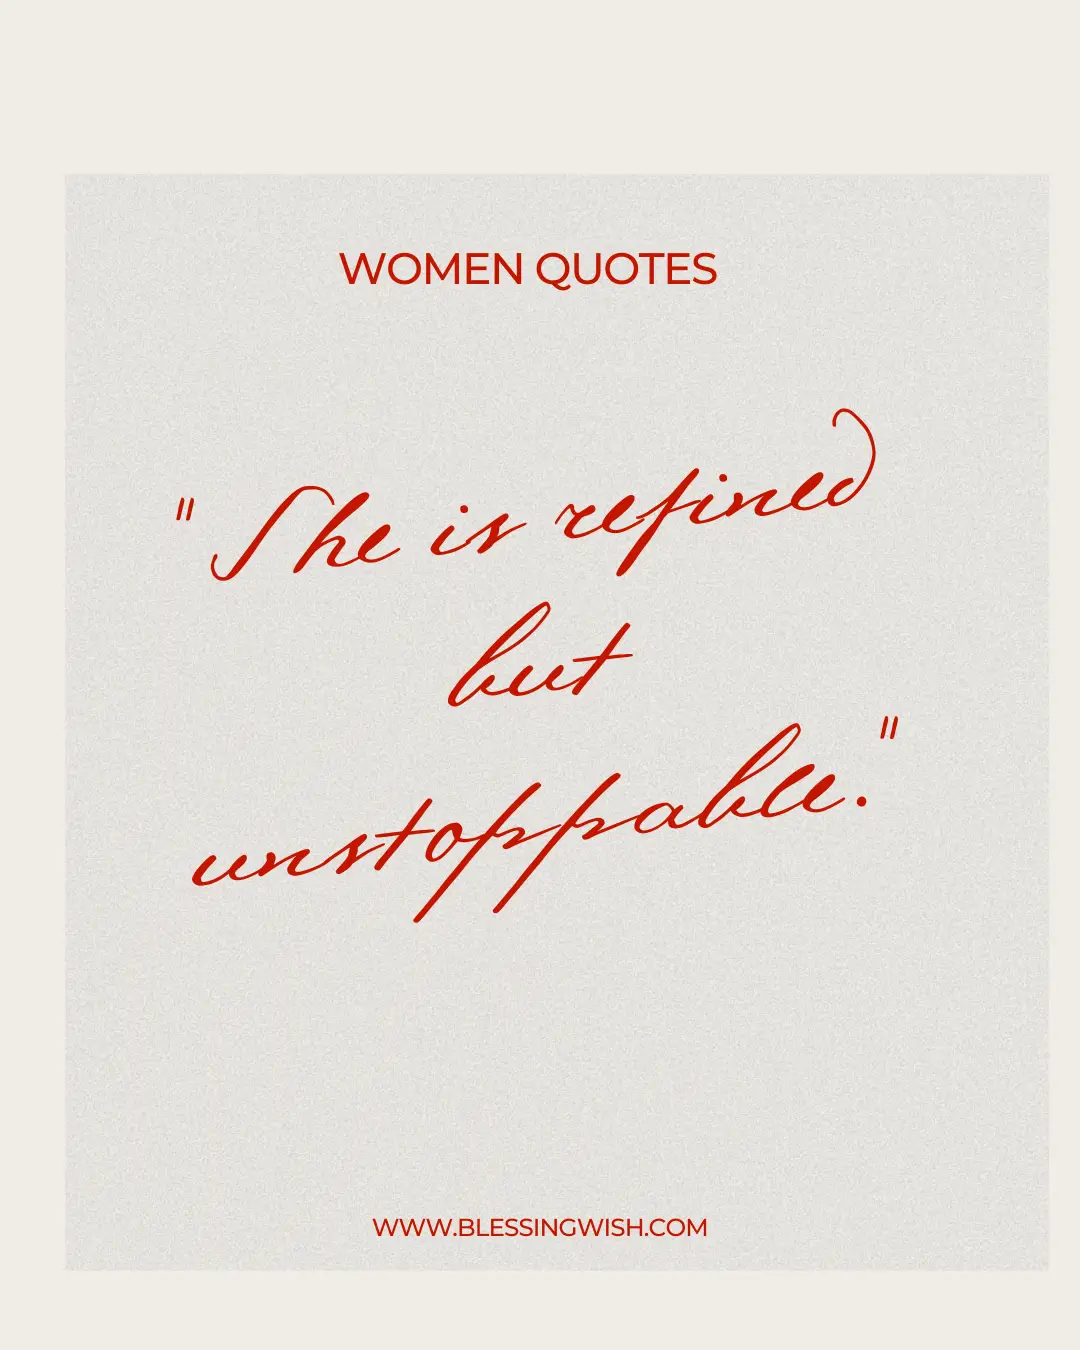 WOMEN QUOTES
"She is refined
but
unstoppable."
WWW.BLESSINGWISH.COM